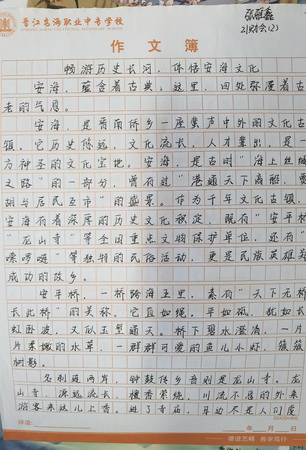 晋江安海职业中专学校
张雅鑫
21财会(2)
作文簿
畅游历史长河，体悟安海文化
安海，蕴含着古典。这里，四处弥漫着古
老的气息。
安海，是晋南侨乡一座集声中外的文化古
镇。它历史悠远，文化流长，人才辈出，是一
方神圣的文化宝地。安海，是古时"海上丝绸
之路"的一部分，曾有过"港通天下商船
胡与居民互市"的盛景。作为千年文化古镇，
安海有着深厚的历史文化积淀，既有"安平桥
""龙山寺"等全国重点文物保护单位，还有"
嗦啰嗹"等独特的民俗活动，更是民族英雄郑
成功的故乡。
安平桥，一桥跨海五里，素有"天下无桥
长此桥"的美称。它直如绳，平如砥，犹如长
虹卧波，又似玉塑通天。桥下碧水澄清，一片
片柔嫩的水草，一群群可爱的鱼儿小虾，簇簇
树影。
名刹随两岸，钟鼓传乡音则是龙山寺。龙
山寺，源远流长，檀香萦绕，川流不息的外来
游客来这儿上香。进了寺庙，耳边不是人们度
评语：
年 月 日
德进艺精 善学笃行